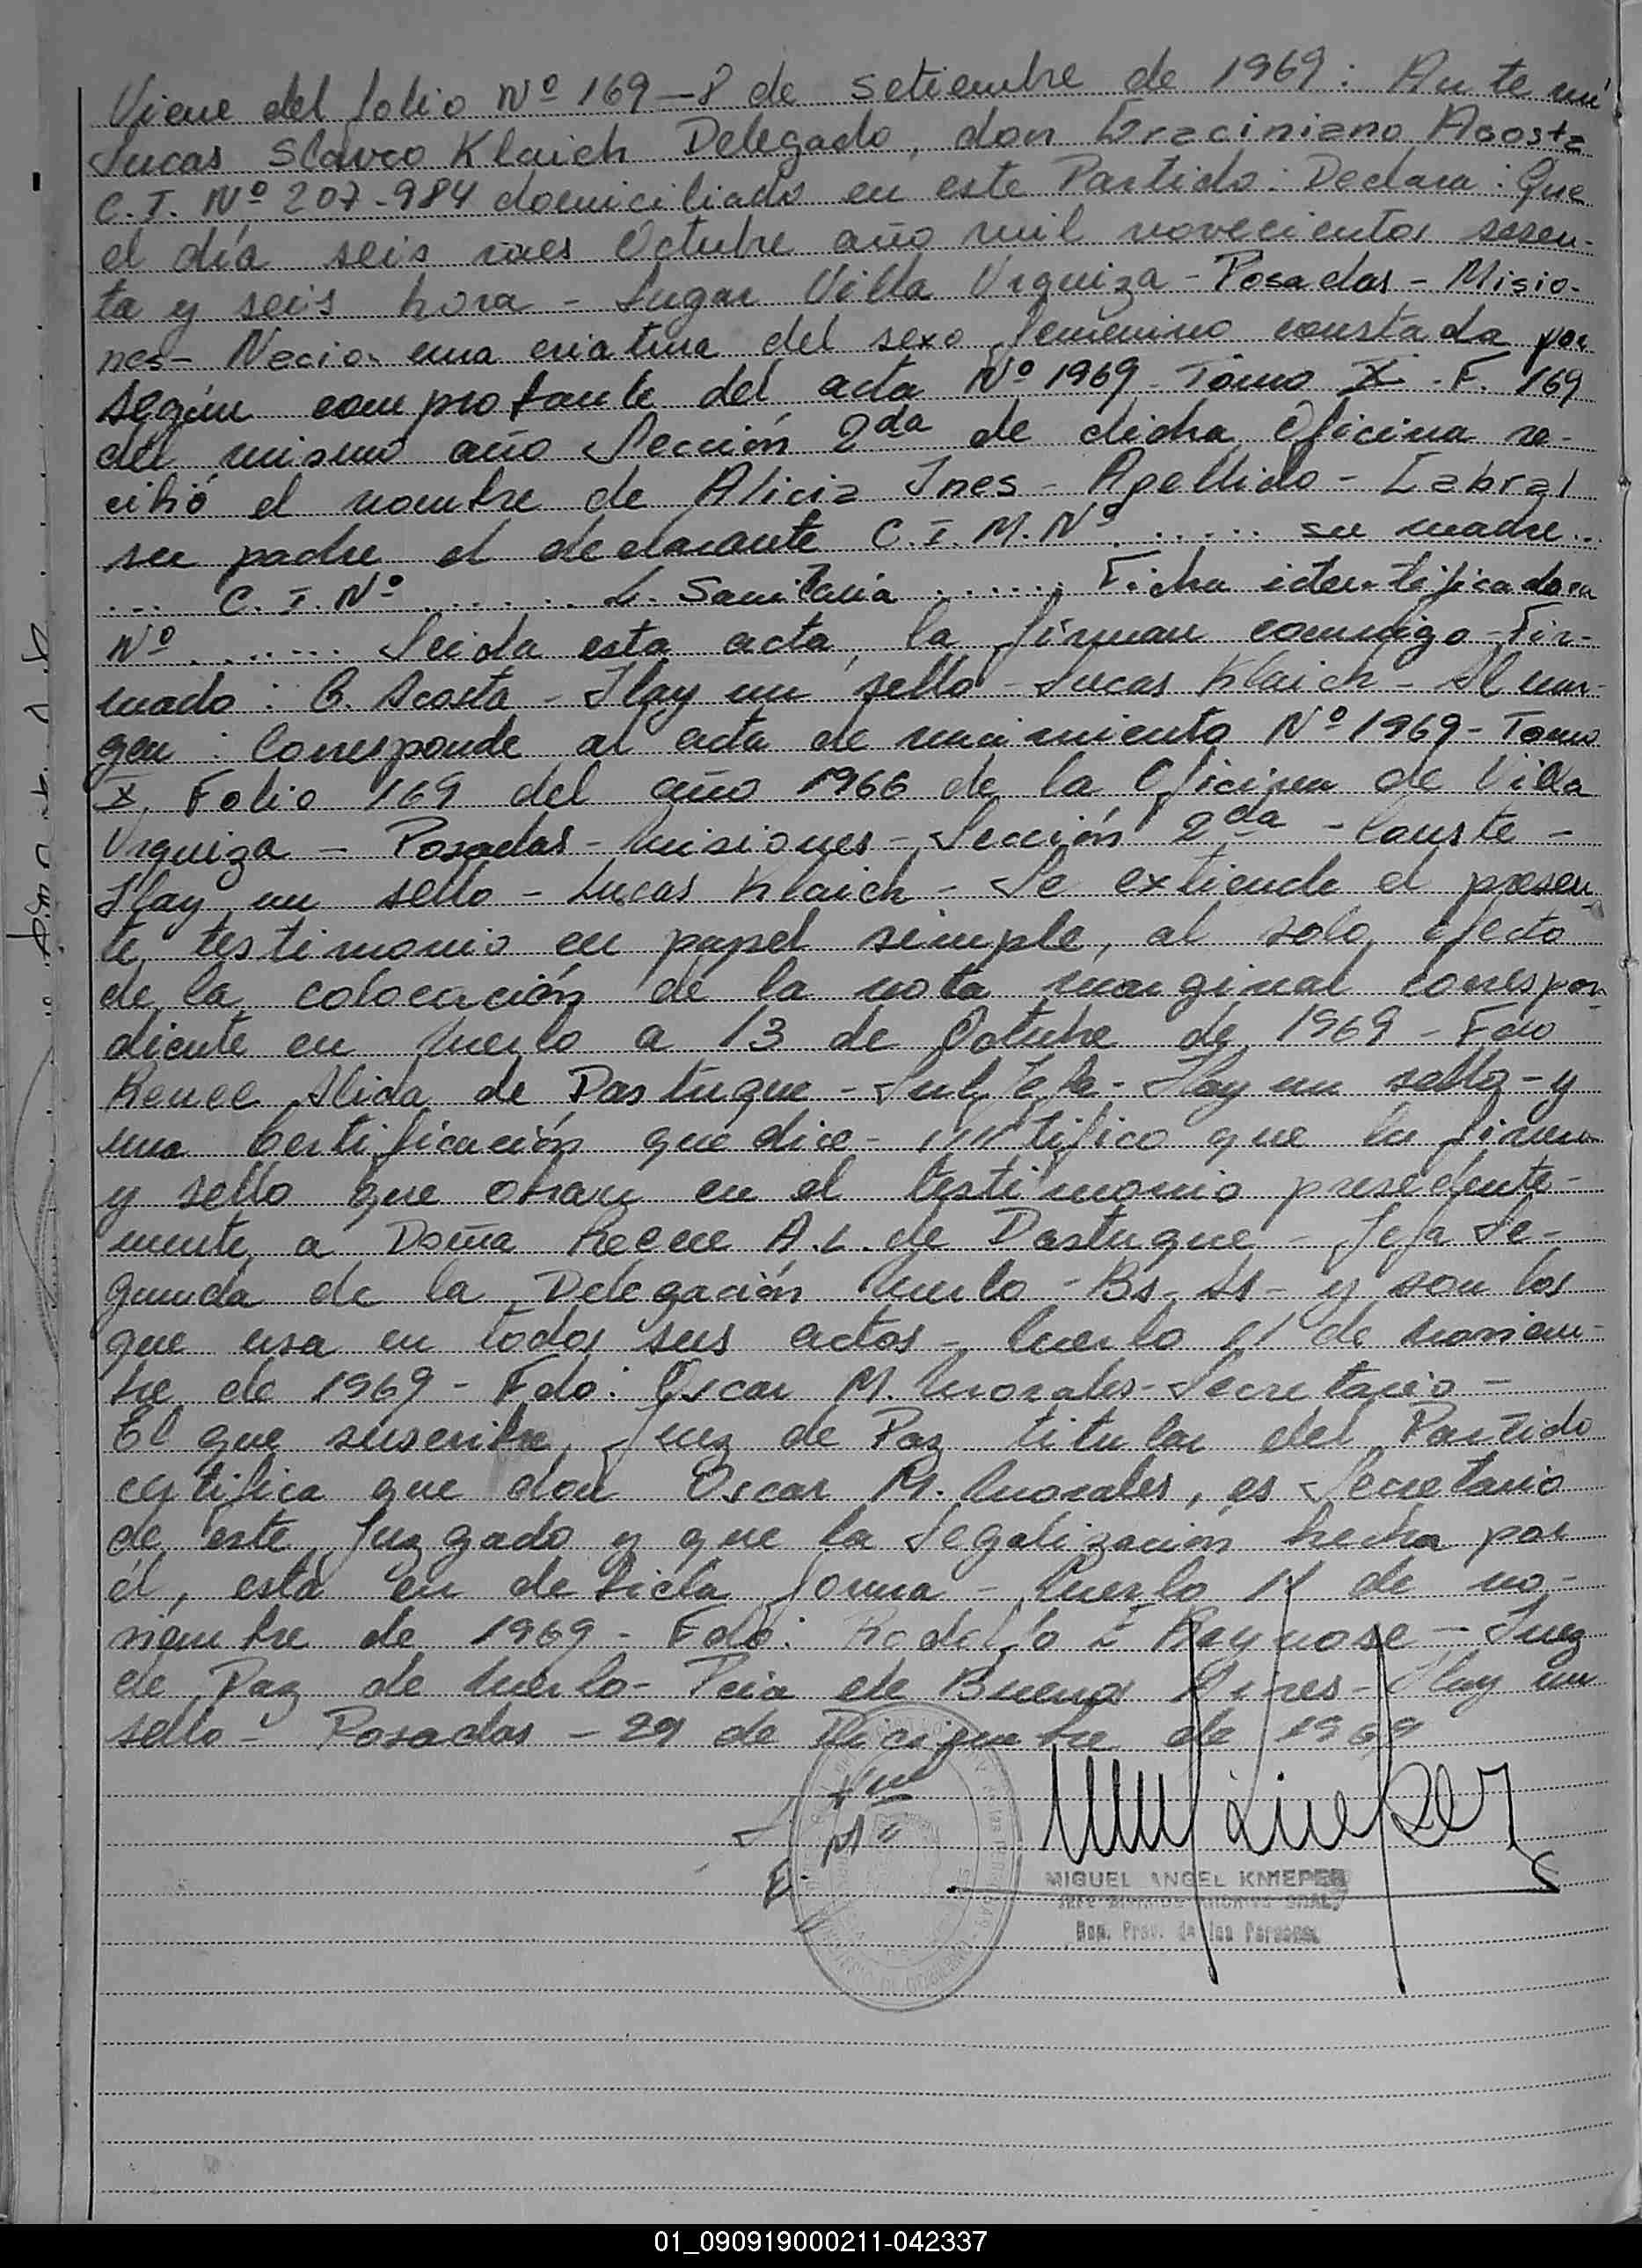 Viene del folio Nº 169 - 8 de setiembre de 1969: Ante mí
Lucas Slavco Klaich Delegado, don Graciniano Acosta
C.I. Nº 207-984 domiciliado en este Partido: Declara: Que
el día seis mes Octubre año mil novecientos sesen-
ta y seis hora - Lugar Villa Urquiza - Posadas - Misio-
nes - Nacio una criatura del sexo femenino constada por
según comprobante del acta Nº 1969 - Tomo X - F. 169
del mismo año Sección 2da de dicha Oficina re-
cibió el nombre de Alicia Ines - Apellido - Cabral
su padre el declarante C.I.M.Nº ...... su madre...
... C.I.Nº ...... L. Sanitaria ...... Ficha identificadora
Nº ....... Leida esta acta, la firman conmigo - Fir-
mado: G. Acosta - Hay un sello - Lucas Klaich - Al mar-
gen: Corresponde al acta de nacimiento Nº 1969 - Tomo
X, Folio 169 del año 1966 de la Oficina de Villa
Urquiza - Posadas - Misiones - Sección 2da - Conste -
Hay un sello - Lucas Klaich - Se extiende el presen-
te testimonio en papel simple, al solo efecto
de la colocación de la nota marginal correspon-
diente en Merlo a 13 de Octubre de 1969 - Fdo
Renee Alida de Dastugue - Sub Jefe - Hay un sello - y
una certificación que dice - que la firma
y sello que obran en el testimonio presedente-
mente, a Doña Renee A.L. de Dastugue - Jefa Se-
gunda de la Delegación Merlo - Bs. As - y son los
que usa en todos sus actos - Merlo 11 de noviem-
bre de 1969 - Fdo: Oscar M. Morales - Secretario -
El que suscribe, Juez de Paz titular del Partido
certifica que don Oscar M. Morales, es Secretario
de este Juzgado y que la Legalización hecha por
él, está en debida forma - Merlo 11 de no-
viembre de 1969 - Fdo: Rodolfo E Reynoso - Juez
de Paz de Merlo - Pcia de Buenos Aires - Hay un
sello - Posadas - 29 de Diciembre de 1969
MIGUEL ANGEL KNIEPER
Reg. Prov. de las Personas
01_090919000211-042337